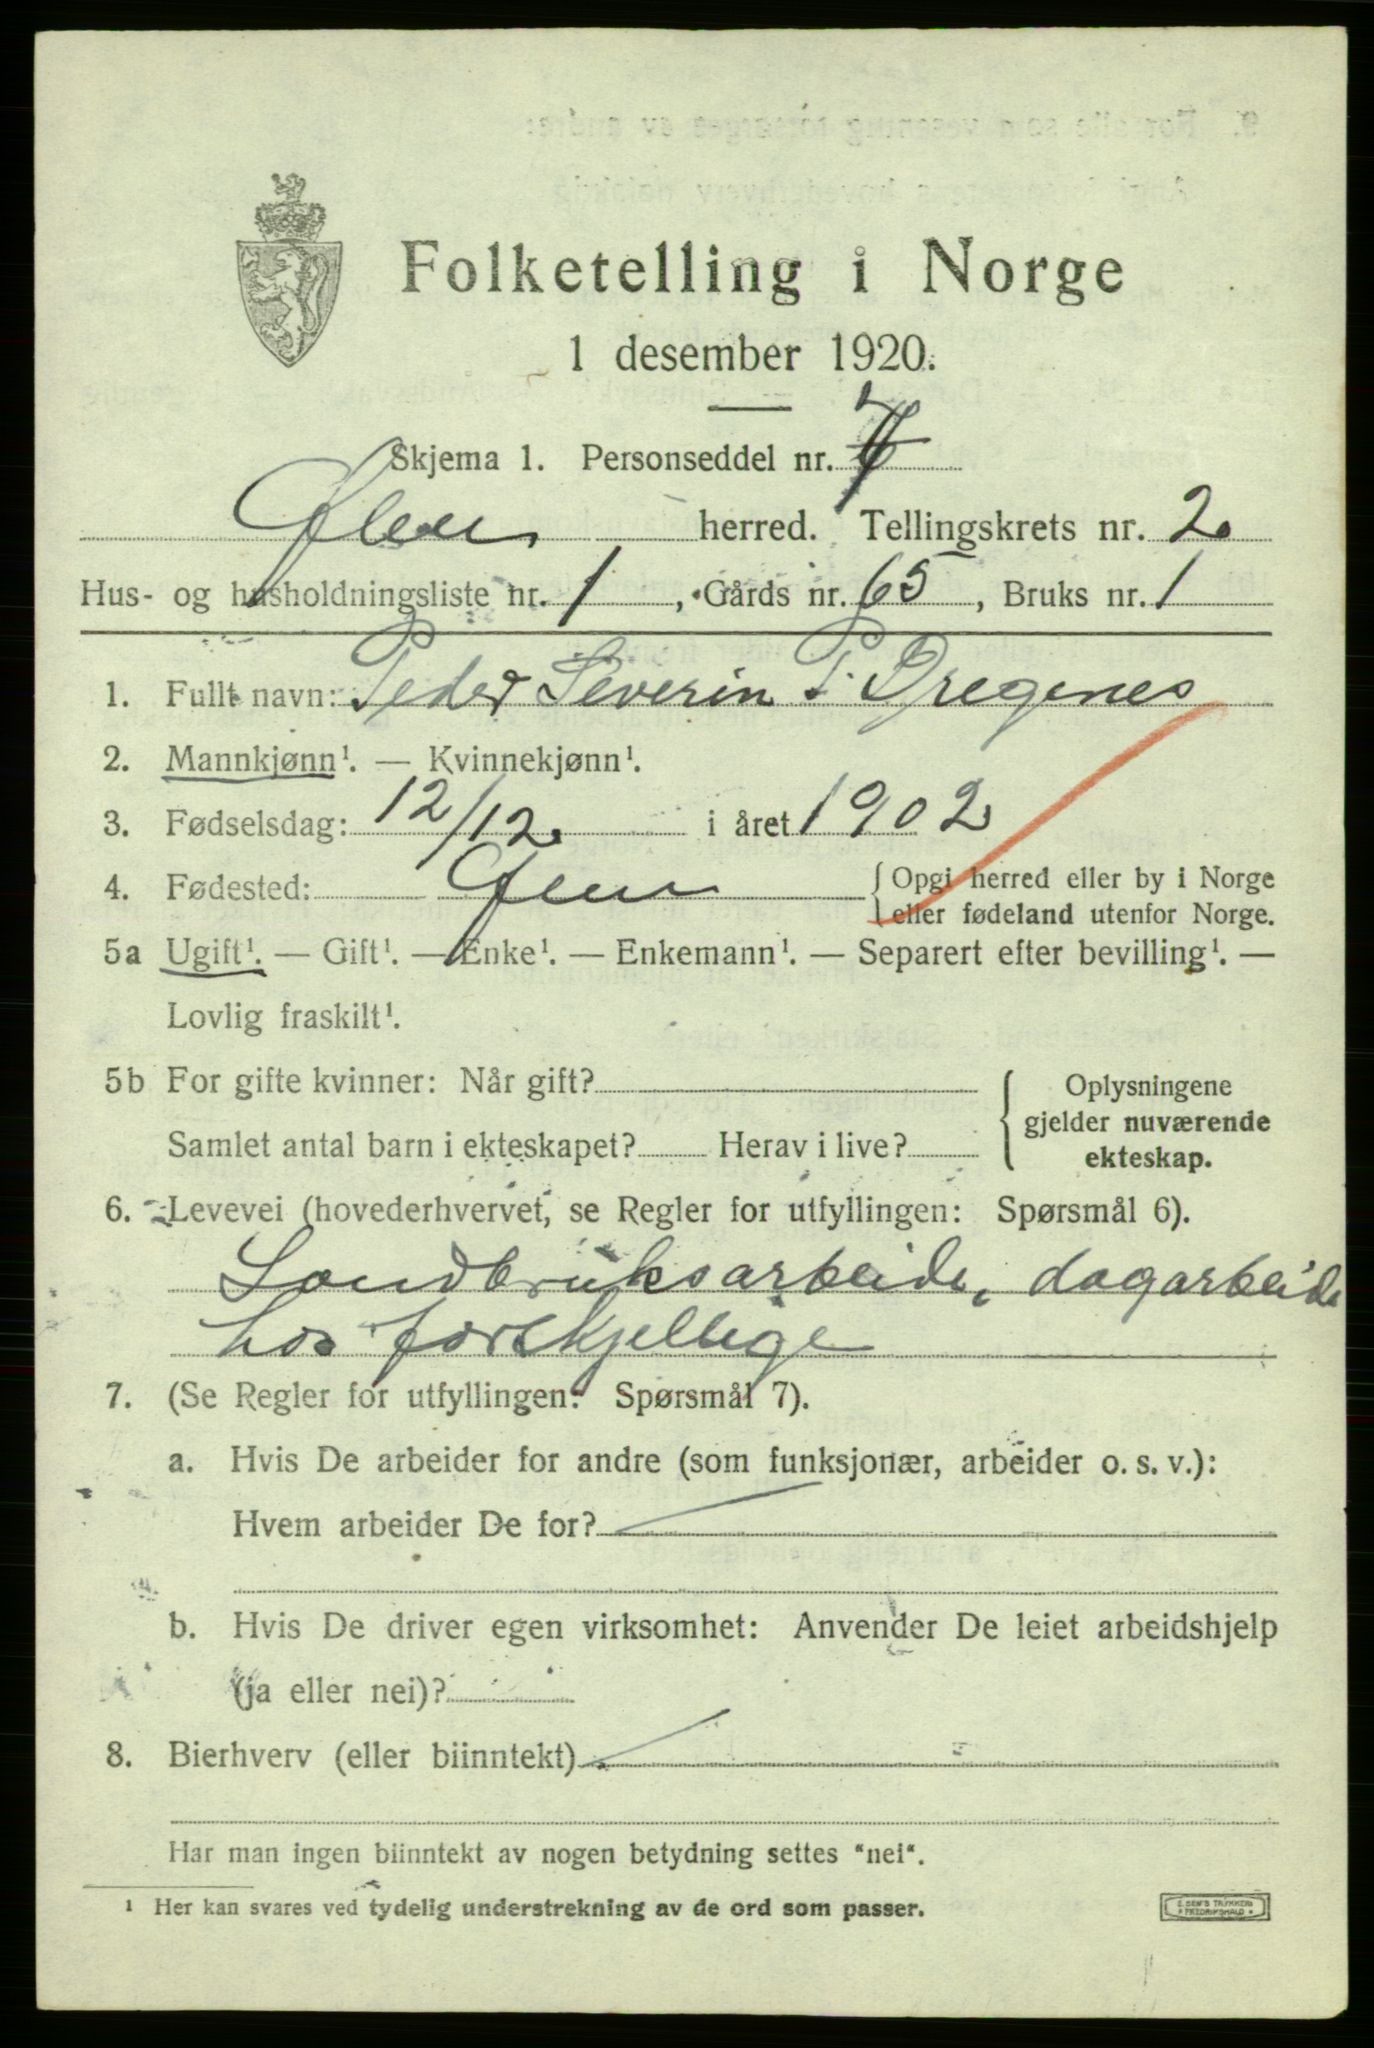 Folketelling i Norge
1 desember 1920.
Skjema 1. Personseddel nr.
Ølen herred. Tellingskrets nr. 2
Hus- og husholdningsliste nr. 1, Gårds nr. 65, Bruks nr. 1
1. Fullt navn: Peder Severin P. Dregenes
2. Mannkjønn¹. — Kvinnekjønn¹.
3. Fødselsdag: 12/12 i året 1902
4. Fødested: Ølen {Opgi herred eller by i Norge
eller fødeland utenfor Norge.
5a Ugift¹. — Gift¹. — Enke¹. — Enkemann¹. — Separert efter bevilling¹. —
Lovlig fraskilt¹.
5b For gifte kvinner: Når gift? { Oplysningene
gjelder nuværende
Samlet antal barn i ekteskapet? Herav i live? ekteskap.
6. Levevei (hovederhvervet, se Regler for utfyllingen: Spørsmål 6).
Landbruksarbeide, dagarbeide
hos forskjellige
7. (Se Regler for utfyllingen: Spørsmål 7).
a. Hvis De arbeider for andre (som funksjonær, arbeider o. s. v.):
Hvem arbeider De for?
b. Hvis De driver egen virksomhet: Anvender De leiet arbeidshjelp
(ja eller nei)?
8. Bierhverv (eller biinntekt)
Har man ingen biinntekt av nogen betydning settes "nei".
¹ Her kan svares ved tydelig understrekning av de ord som passer.